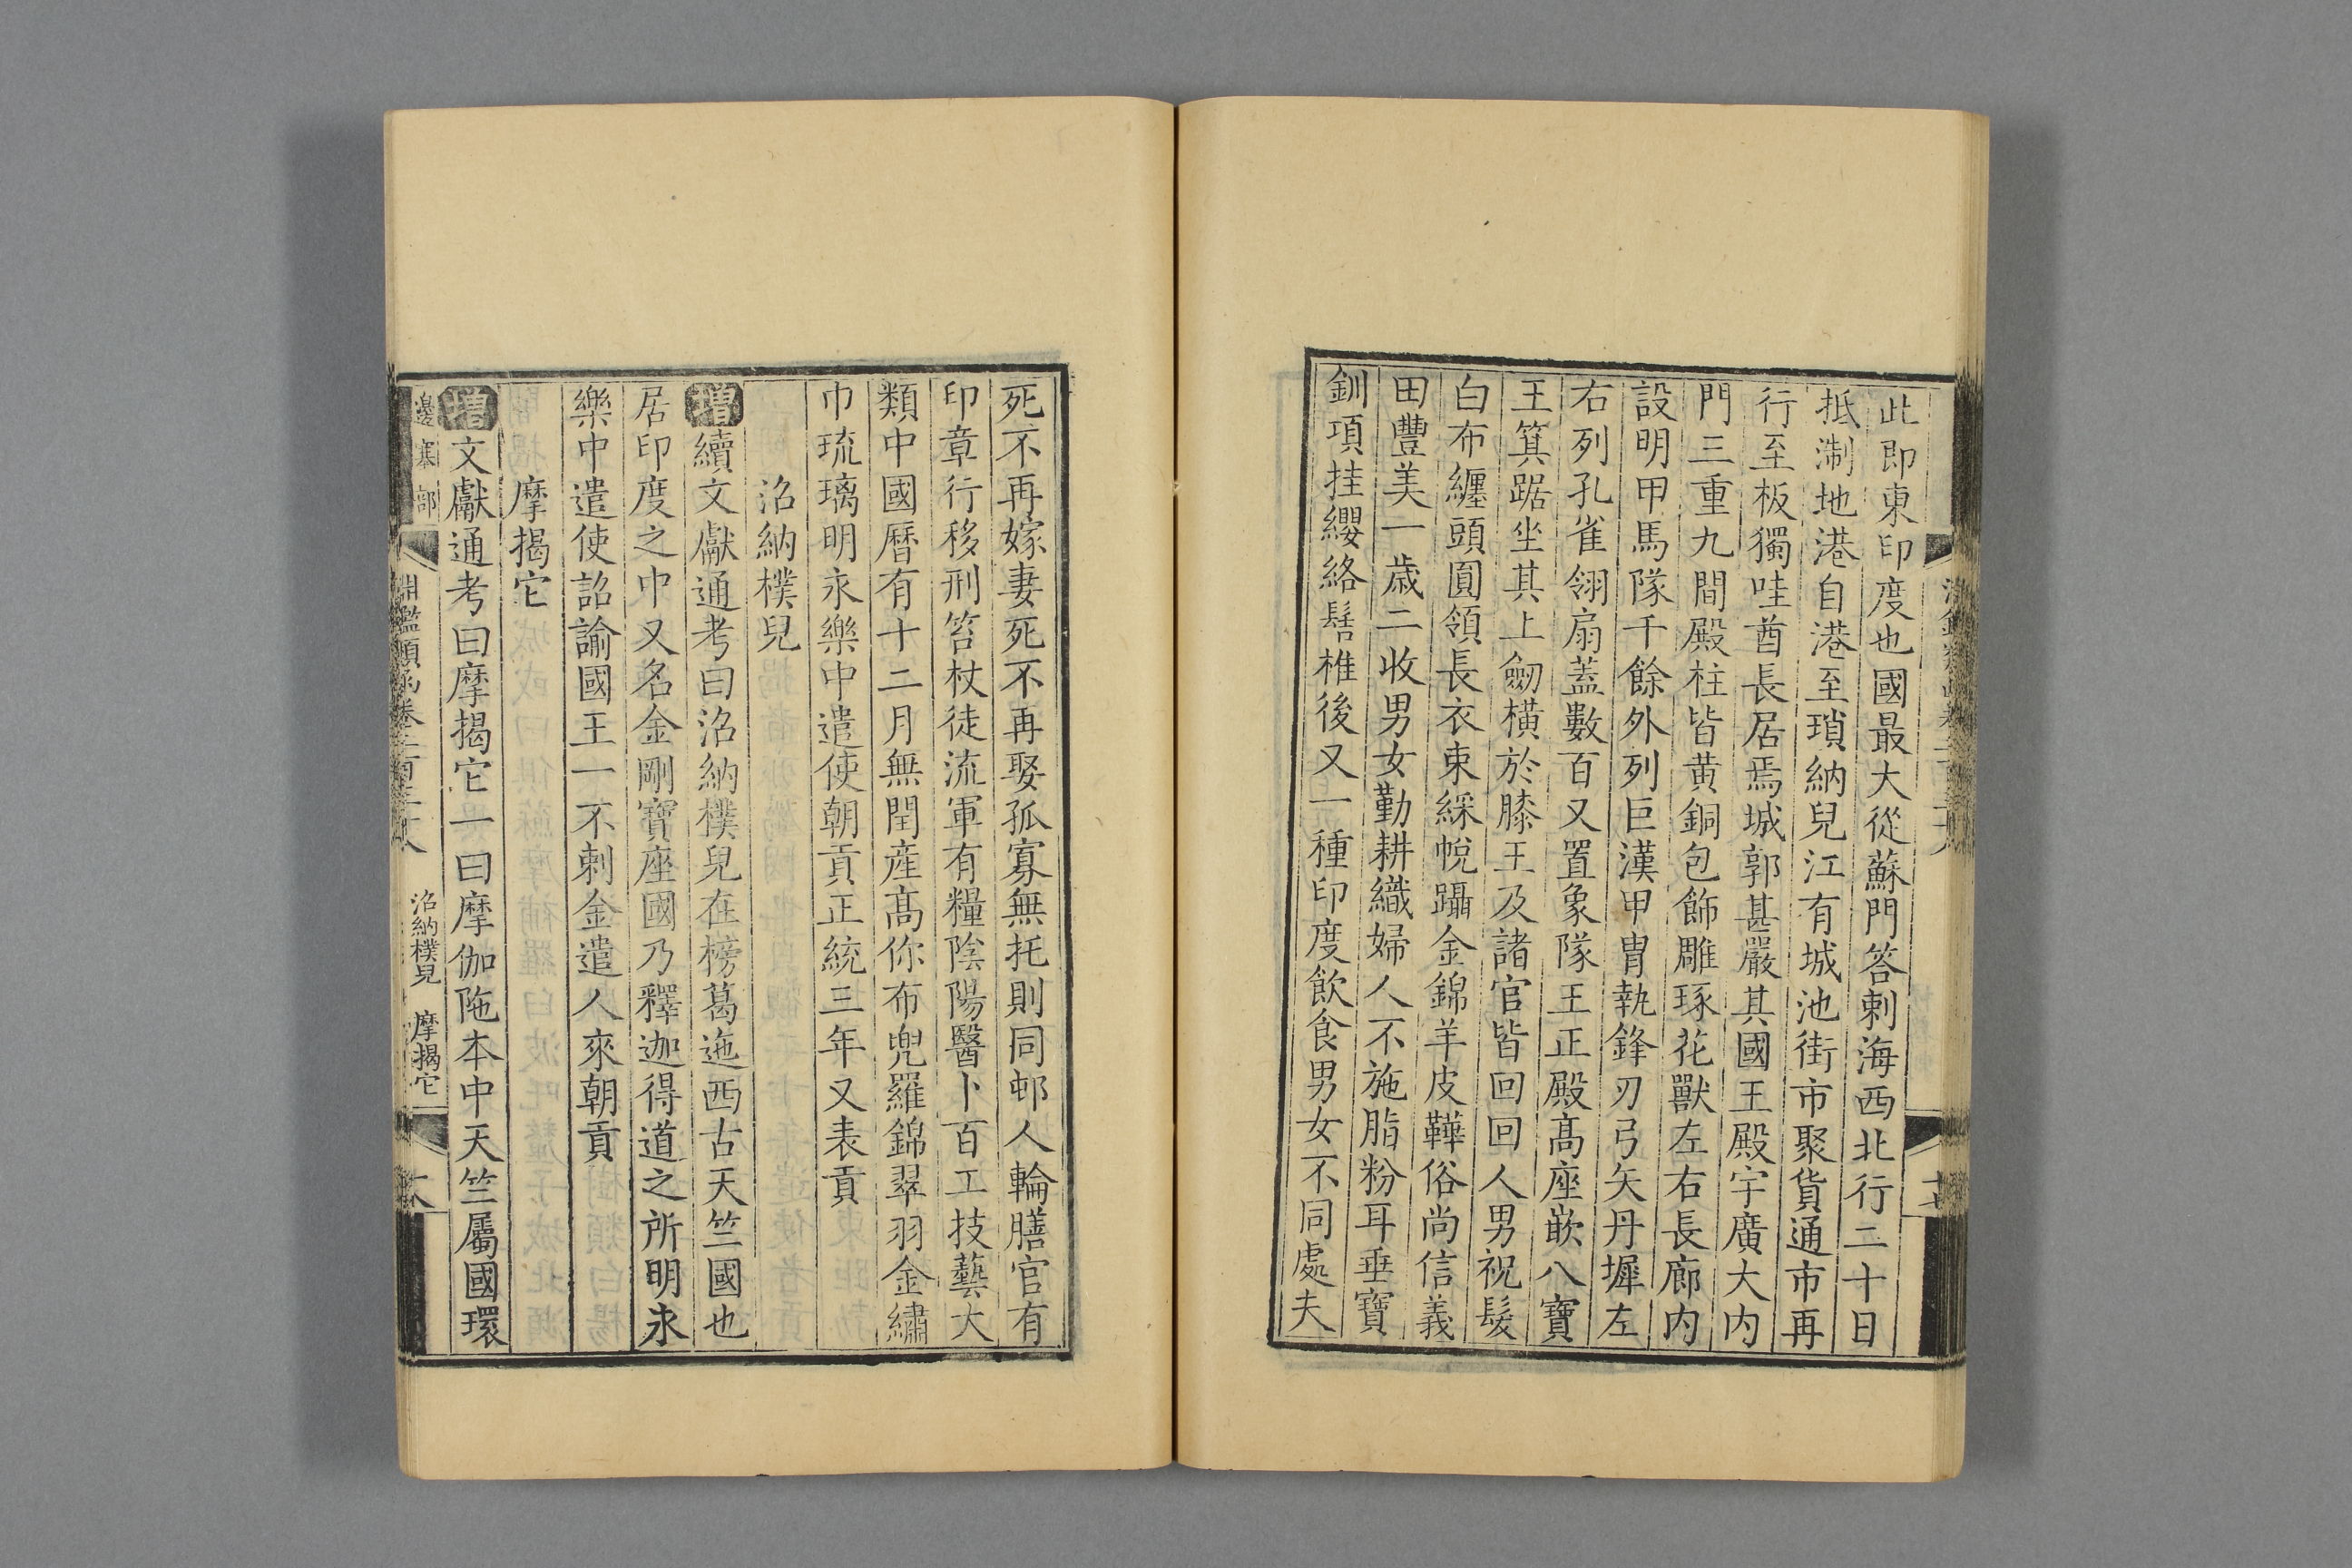 此即東印度也國最大從蘇門答剌海西北行二十日
抵淛地港自港至瑣納兒江有城池街市聚貨通市再
行至板獨哇酋長居焉城郭甚嚴其國王殿宇廣大内
門三重九間殿柱皆黄銅包飾雕琢花獸左右長廊内
設明甲馬隊千餘外列巨漢甲胄執鋒刃弓矢丹墀左
右列孔雀翎扇蓋數百又置象隊王正殿髙座嵌八寶
王箕踞坐其上劒横於膝王及諸官皆回回人男祝髮
白布纏頭圓領長衣束綵帨躡金錦羊皮鞾俗尚信義
田豐美一歲二收男女勤耕織婦人不施脂粉耳垂寶
釧項挂纓絡髻椎後又一種印度飲食男女不同處夫
死不再嫁妻死不再娶孤寡無托則同邨人輪膳官有
印章行移刑笞杖徒流軍有糧陰陽醫卜百工技藝大
類中國曆有十二月無閏産髙你布兜羅錦翠羽金繡
巾琉璃明永樂中遣使朝貢正統三年又表貢
沼納樸兒
增續文獻通考曰沼納樸兒在榜葛迤西古天竺國也
居印度之中又名金剛寶座國乃釋迦得道之所明永
樂中遣使詔諭國王一不剌金遣人來朝貢
摩揭它
增文獻通考曰摩揭它一曰摩伽陁本中天竺屬國環
邊塞部
淵鑑類函卷二百三十八
沼納樸兒 摩揭它